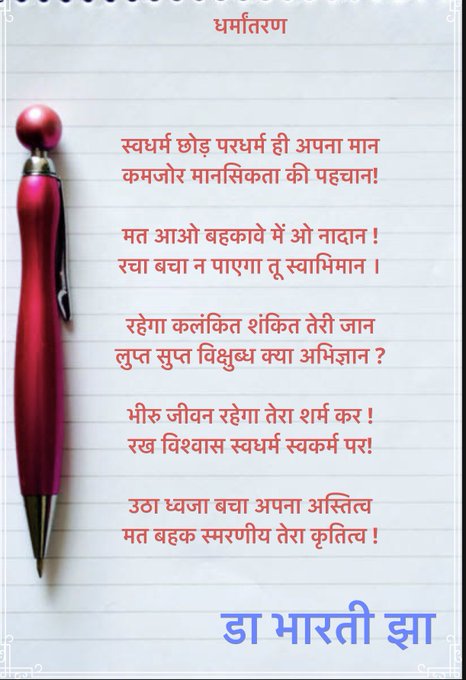 धर्मांतरण
स्वधर्म छोड़ परधर्म ही अपना मान
कमजोर मानसिकता की पहचान!
मत आओ बहकावे में ओ नादान !
रचा बचा न पाएगा तू स्वाभिमान ।
रहेगा कलंकित शंकित तेरी जान
लुप्त सुप्त विक्षुब्ध क्या अभिज्ञान ?
भीरु जीवन रहेगा तेरा शर्म कर !
रख विश्वास स्वधर्म स्वकर्म पर!
उठा ध्वजा बचा अपना अस्तित्व
मत बहक स्मरणीय तेरा कृतित्व !
डा भारती झा